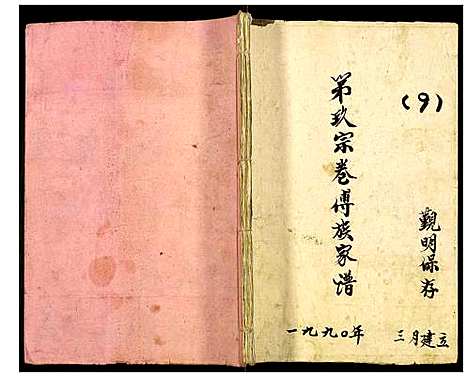 (9)
第玖宗卷傅族家谱
觐明保存
一九九〇年 三月建立